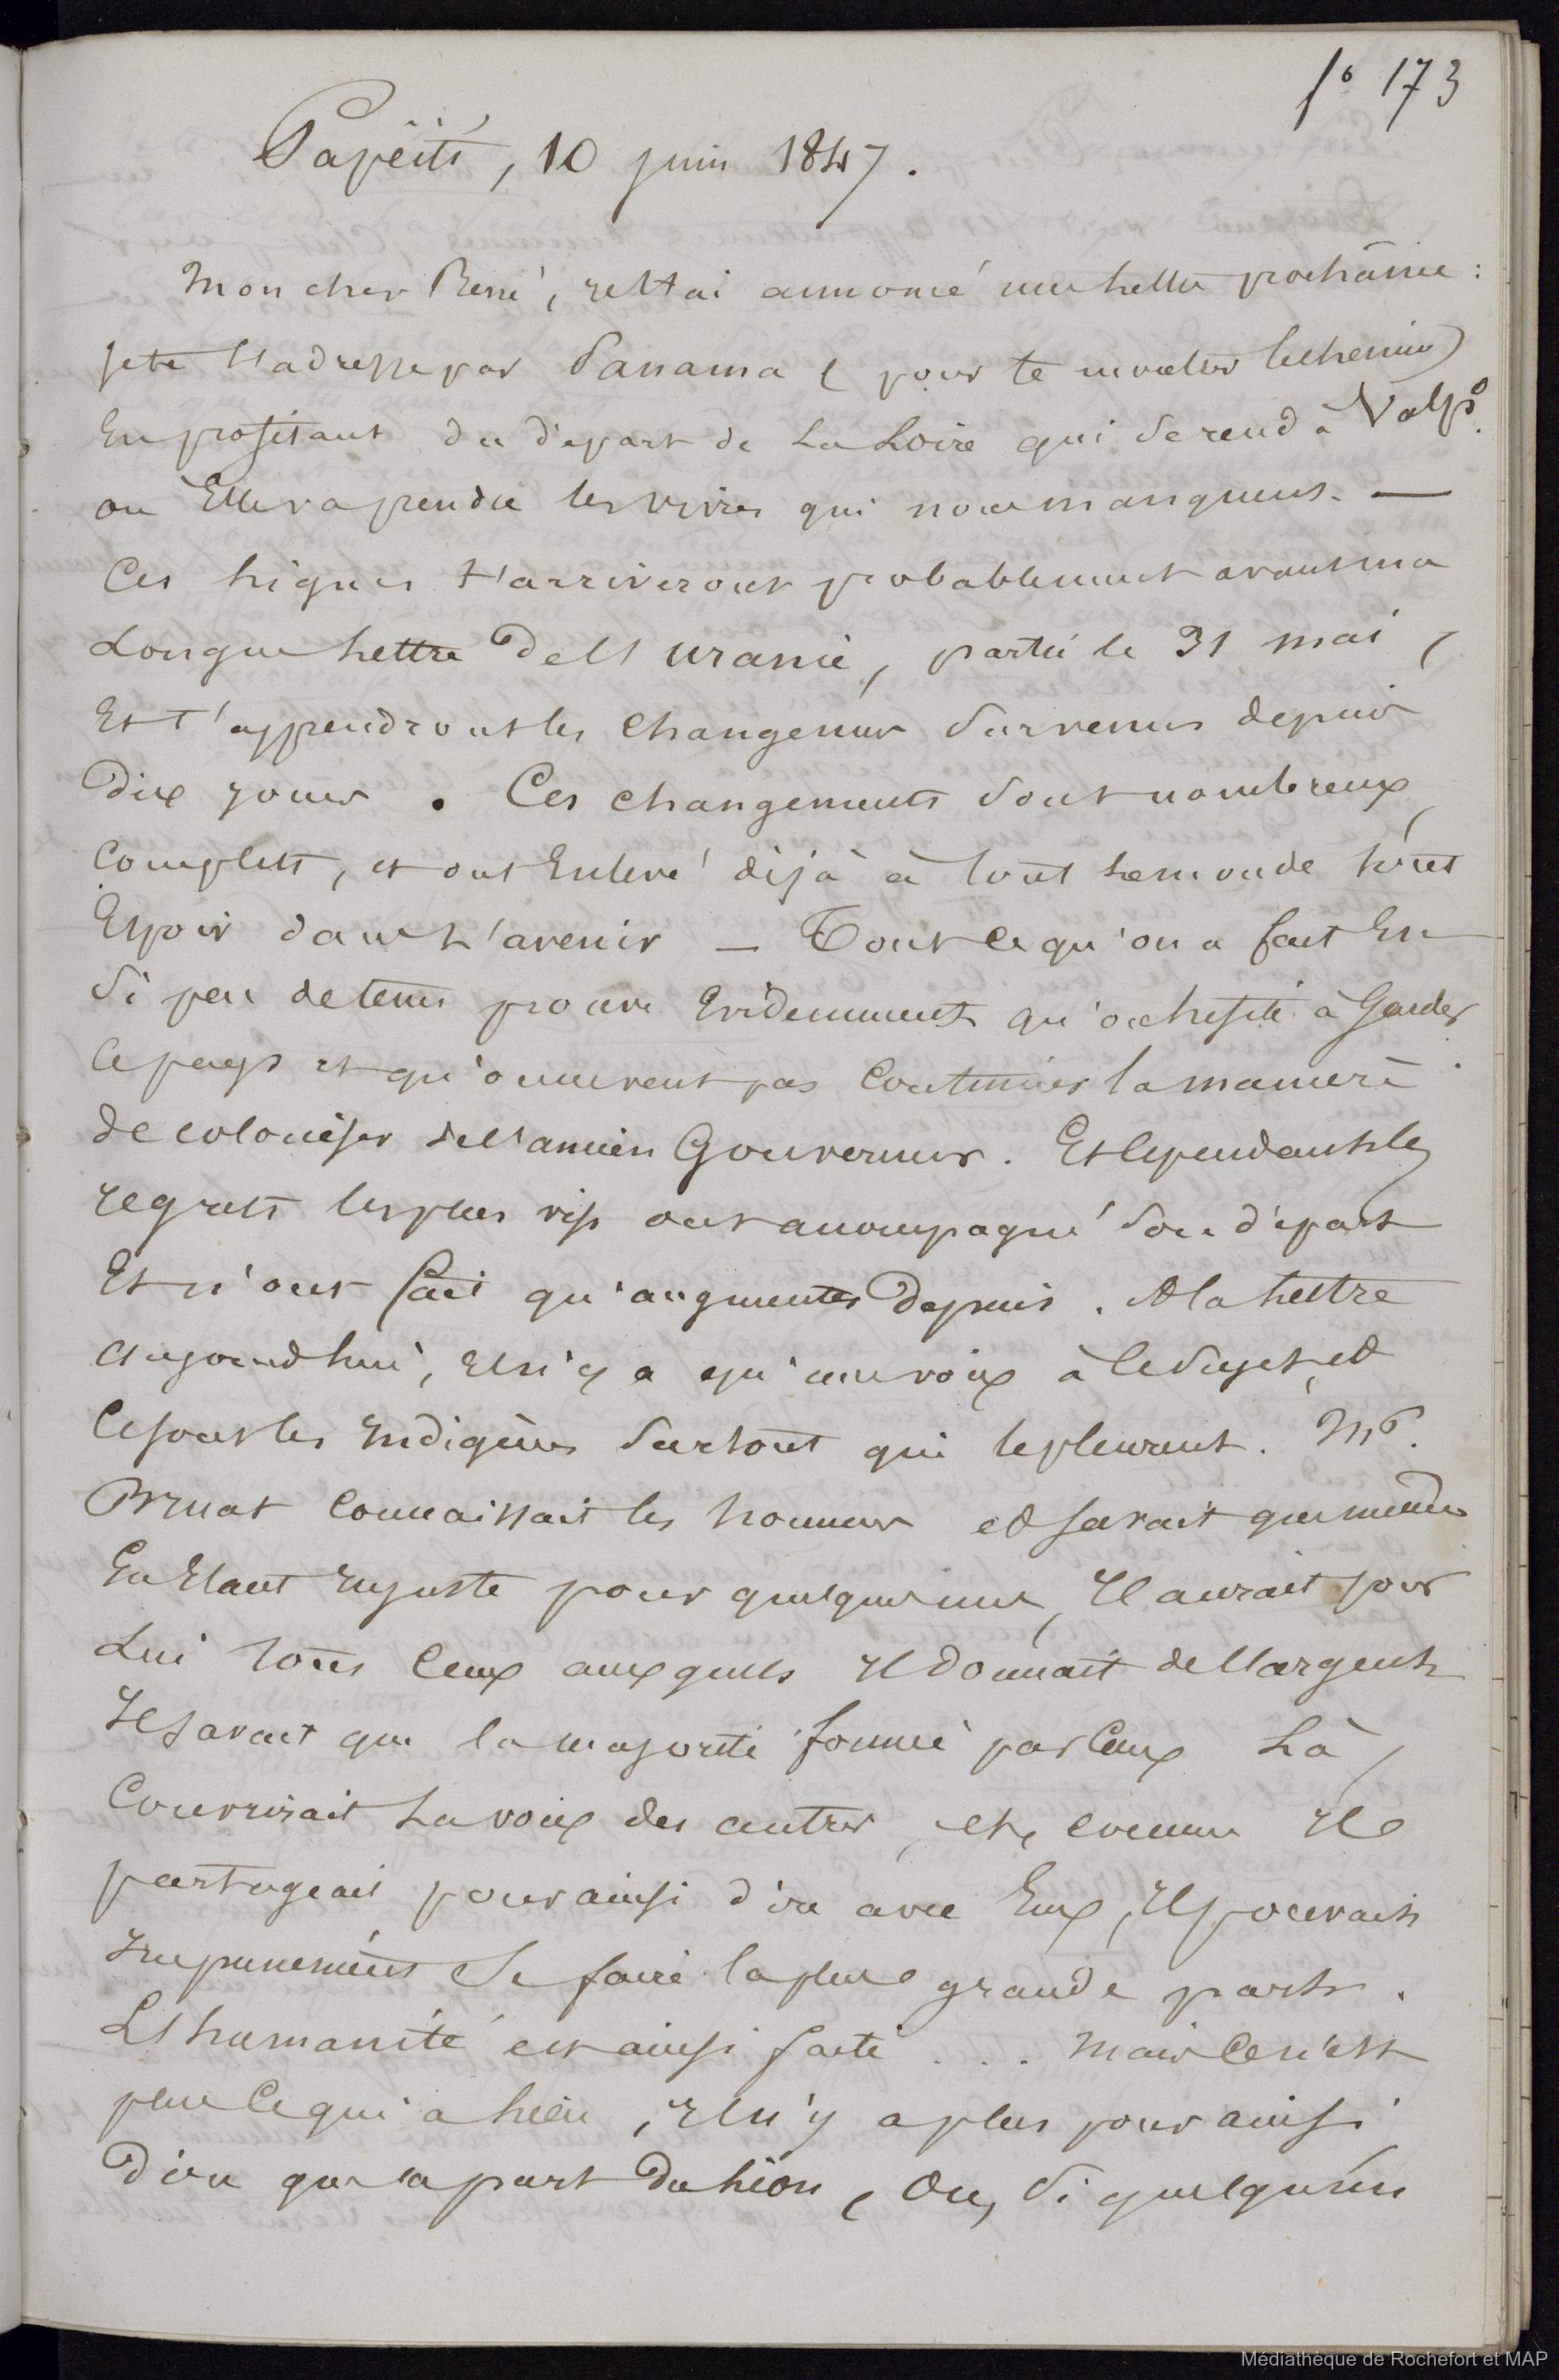 fo 173
Papëiti, 10 juin 1847.
Mon cher René, je t'ai annoncé une lettre prochaine :
je te l'adresse par Panama (pour te montrer le chemin)
En profitant du départ de La Loire qui se rend à Valpo.
où Elle va prendre les vivres qui nous manquent. —
Ces lignes t'arriveront probablement avant ma
Longue Lettre De l'uranie, partie le 31 mai,
Et t'apprendront les changemens survenus depuis
Dix jours. Ces changements sont nombreux,
complets, et ont Enlevé déjà à tout le monde tout
Espoir dans l'avenir — Tout ce qu'on a fait En
si peu de tems prouve Evidemment qu'on hésite à Garder
ce pays et qu'on ne veut pas continuer la manière
de coloniser de l'ancien Gouverneur. Et cependant les
regrets les plus vifs ont accompagné son départ
Et n'ont fait qu'augmenter Depuis. A la lettre
aujourd'hui, Il n'y a qu'une voix à ce sujet, et
ce sont les Indigènes surtout qui le pleurent. Mr.
Bruat connaissait les hommes et savait que même
En Etant Injuste pour quelques uns, Il aurait pour
Lui tous ceux auxquels Il donnait de l'argent
Il savait que la majorité formée par ceux Là,
couvrirait La voix des autres, et, comme Il
partageait pour ainsi dire avec Eux, Il pouvait
Impunément se faire la plus grande part.
L'humanité est ainsi faite... mais ce n'est
plus ce qui a lieu, Il n'y a plus pour ainsi
Dire que la part Du Lion, Ou, si quelqu'un
Médiathèque de Rochefort et MAP